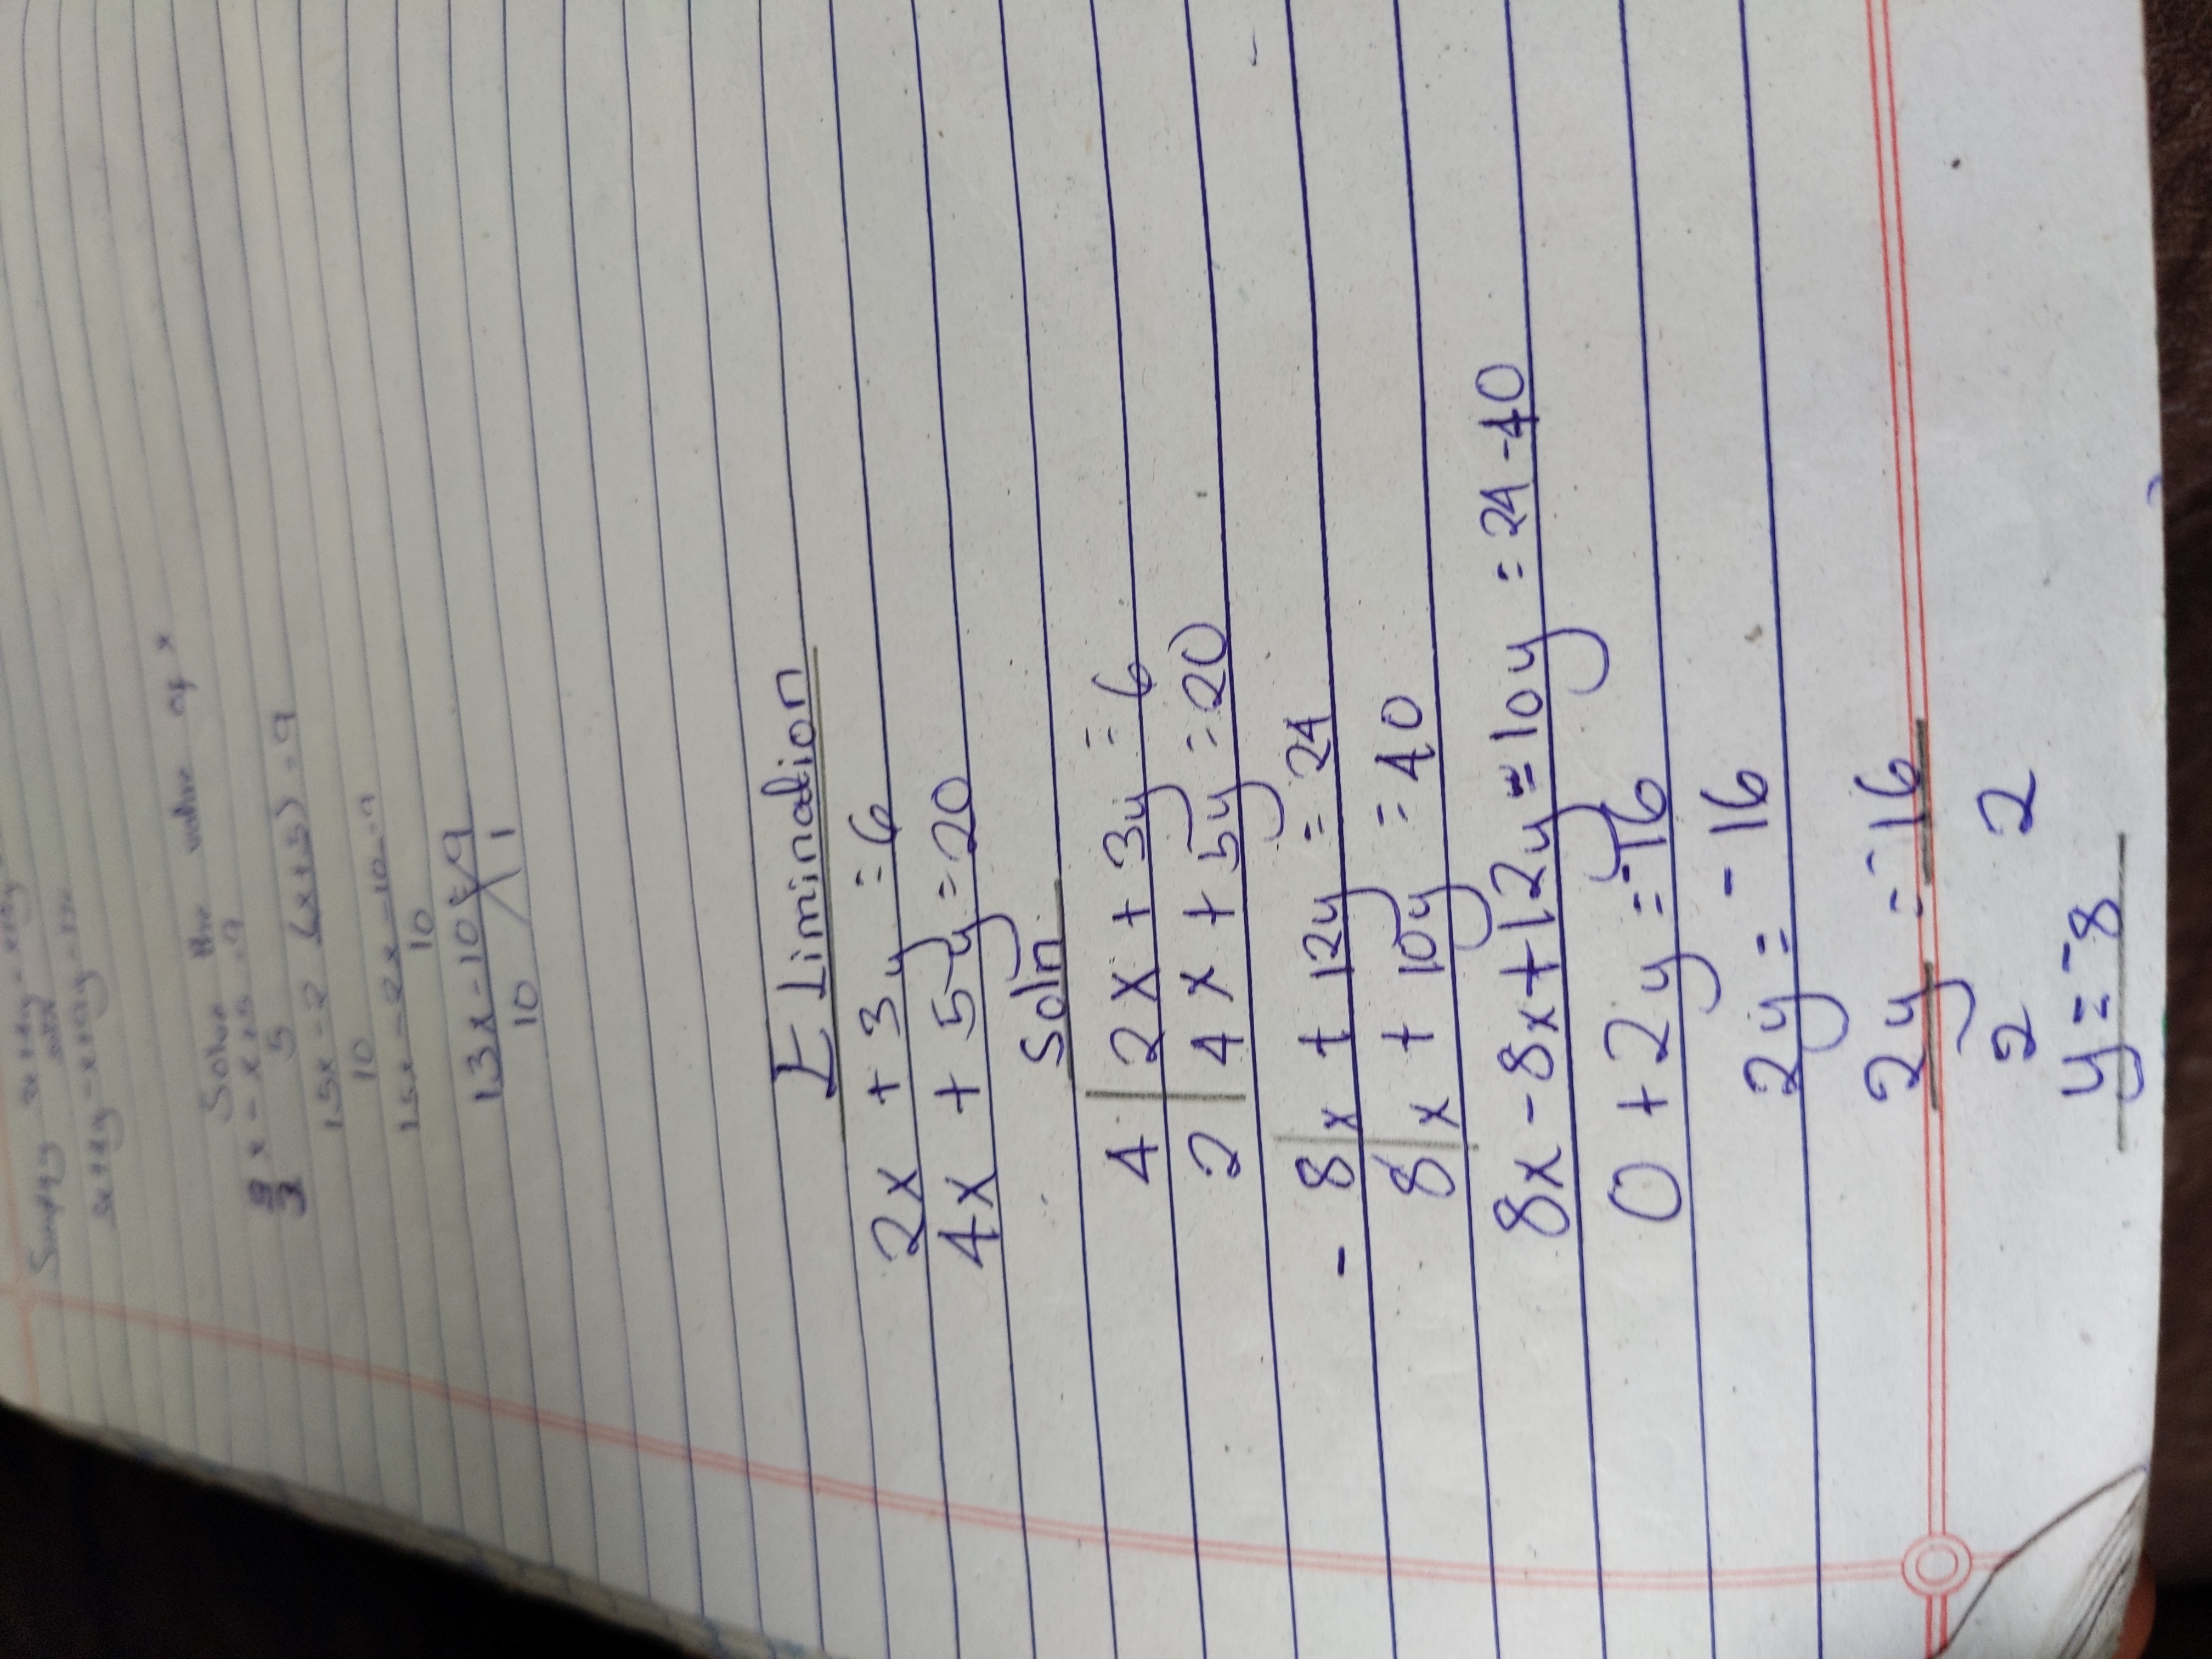 Simplify
Solve the value of x
5
15x - 2 (x+5) = 9
10
15x - 2x - 10 = 9
10
13x - 10 = 9
10 1
Elimination
2x + 3y = 6
4x + 5y = 20
Soln
4 | 2x + 3y = 6
2 | 4x + 5y = 20
- 8x + 12y = 24
8x + 10y = 40
8x - 8x + 12y - 10y = 24 - 40
0 + 2y = -16
2y = -16
2y = -16
2 2
y = -8